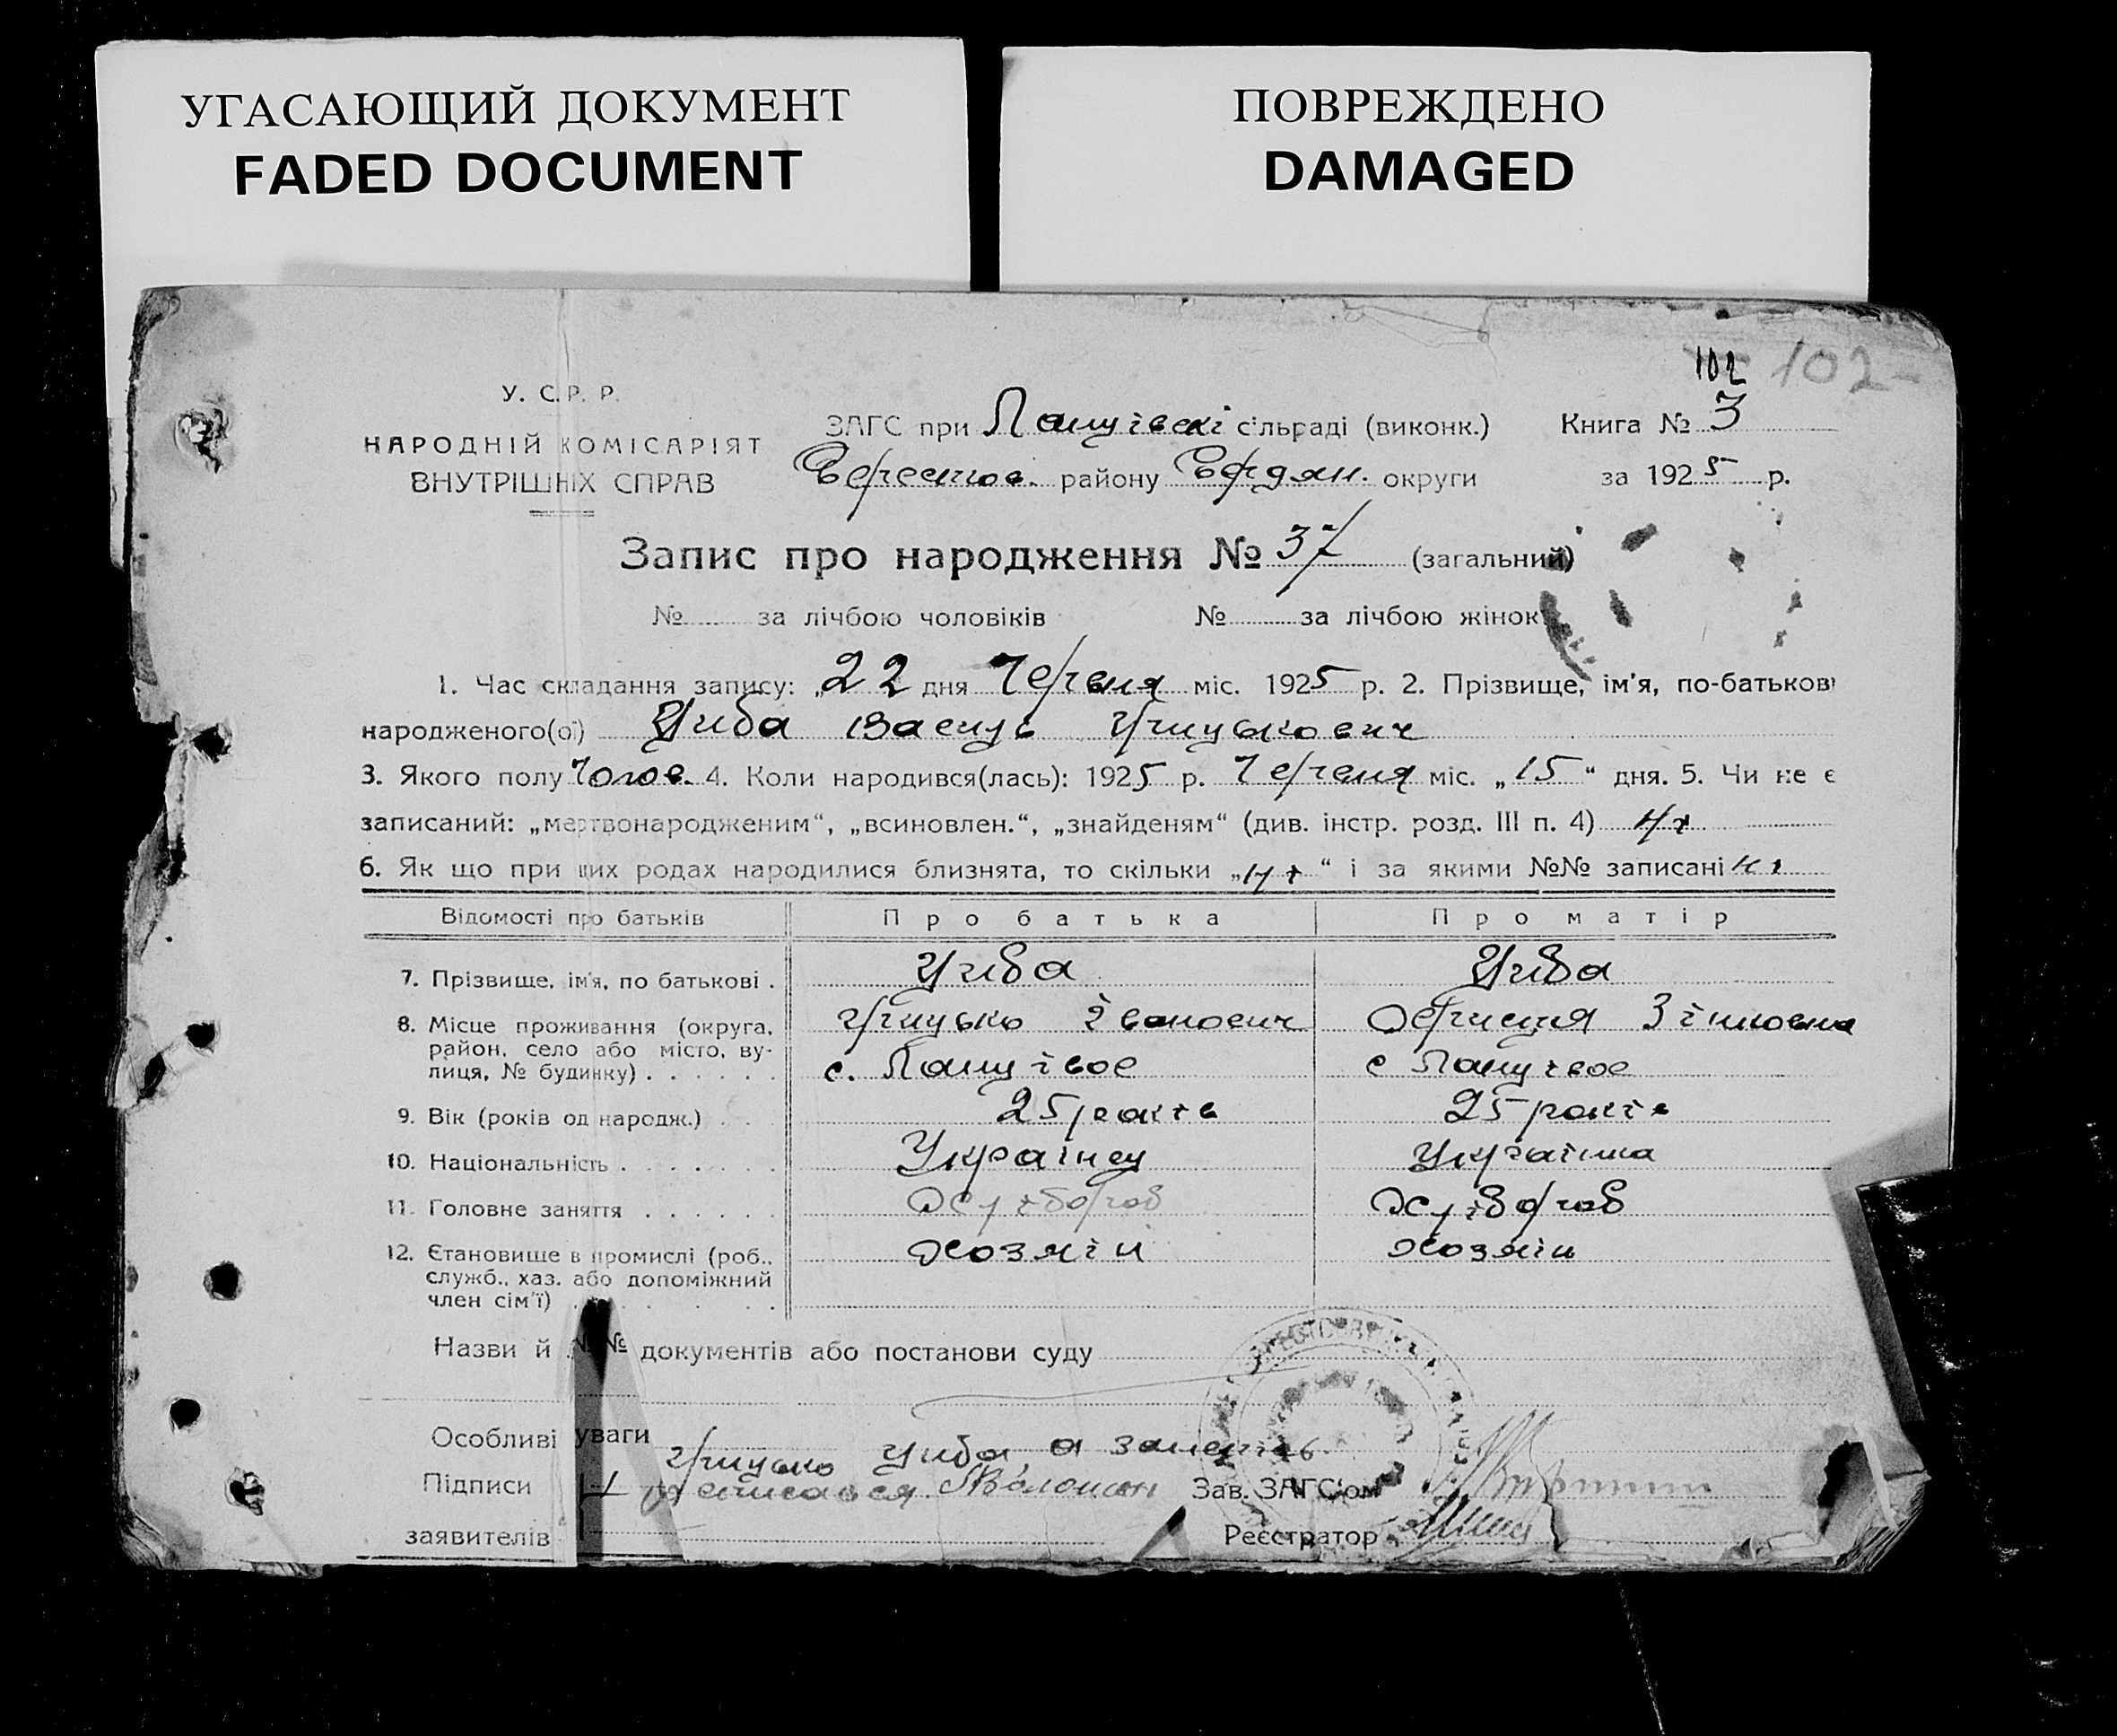 УГАСАЮЩИЙ ДОКУМЕНТ
FADED DOCUMENT
ПОВРЕЖДЕНО
DAMAGED
102 102
У. С.Р. Р.
НАРОДНІЙ КОМІСАРІЯТ
ВНУТРІШНІХ СПРАВ
ЗАГС при сільраді (виконк.) Книга № 3
Берестов. району Бердян. округи за 1925 р.
Запис про народження № 37 (загальний)
№ за лічбою чоловіків № за лічбою жінок
1. Час складання запису: „22 дня Червня міс. 1925 р. 2. Прізвище, ім'я, по-батькові
народженого(ої) Циба Василь Грицькович
3. Якого полу Чолов. 4. Коли народився(лась): 1925 р. Червня міс. „15“ дня. 5. Чи не є
записаний: „мертвонародженим“, „всиновлен.“, „знайденям“ (див. інстр. розд. III п. 4) Ні
6. Як що при цих родах народилися близнята, то скільки „Ні“ і за якими №№ записані Ні
Відомості про батьків Про батька Про матір
7. Прізвище, ім'я, по батькові . Циба Циба
8. Місце проживання (округа, район, село або місто, вулиця, № будинку) . . . . . . Грицько Іванович
с. с
9. Вік (років од народж.) . . . 25 років 25 років
10. Національність . . . . . . . Українец Українка
11. Головне заняття . . . . . . Хлібороб Хлібороб
12. Єтановище в промислі (роб., служб., хаз. або допоміжний член сім'ї) . . . . . Хозяін Хозяін
Назви й №№ документів або постанови суду
Особливі уваги
Грицько Циба, а за
Підписи Зав. ЗАГС'ом
заявителів Реєстратор